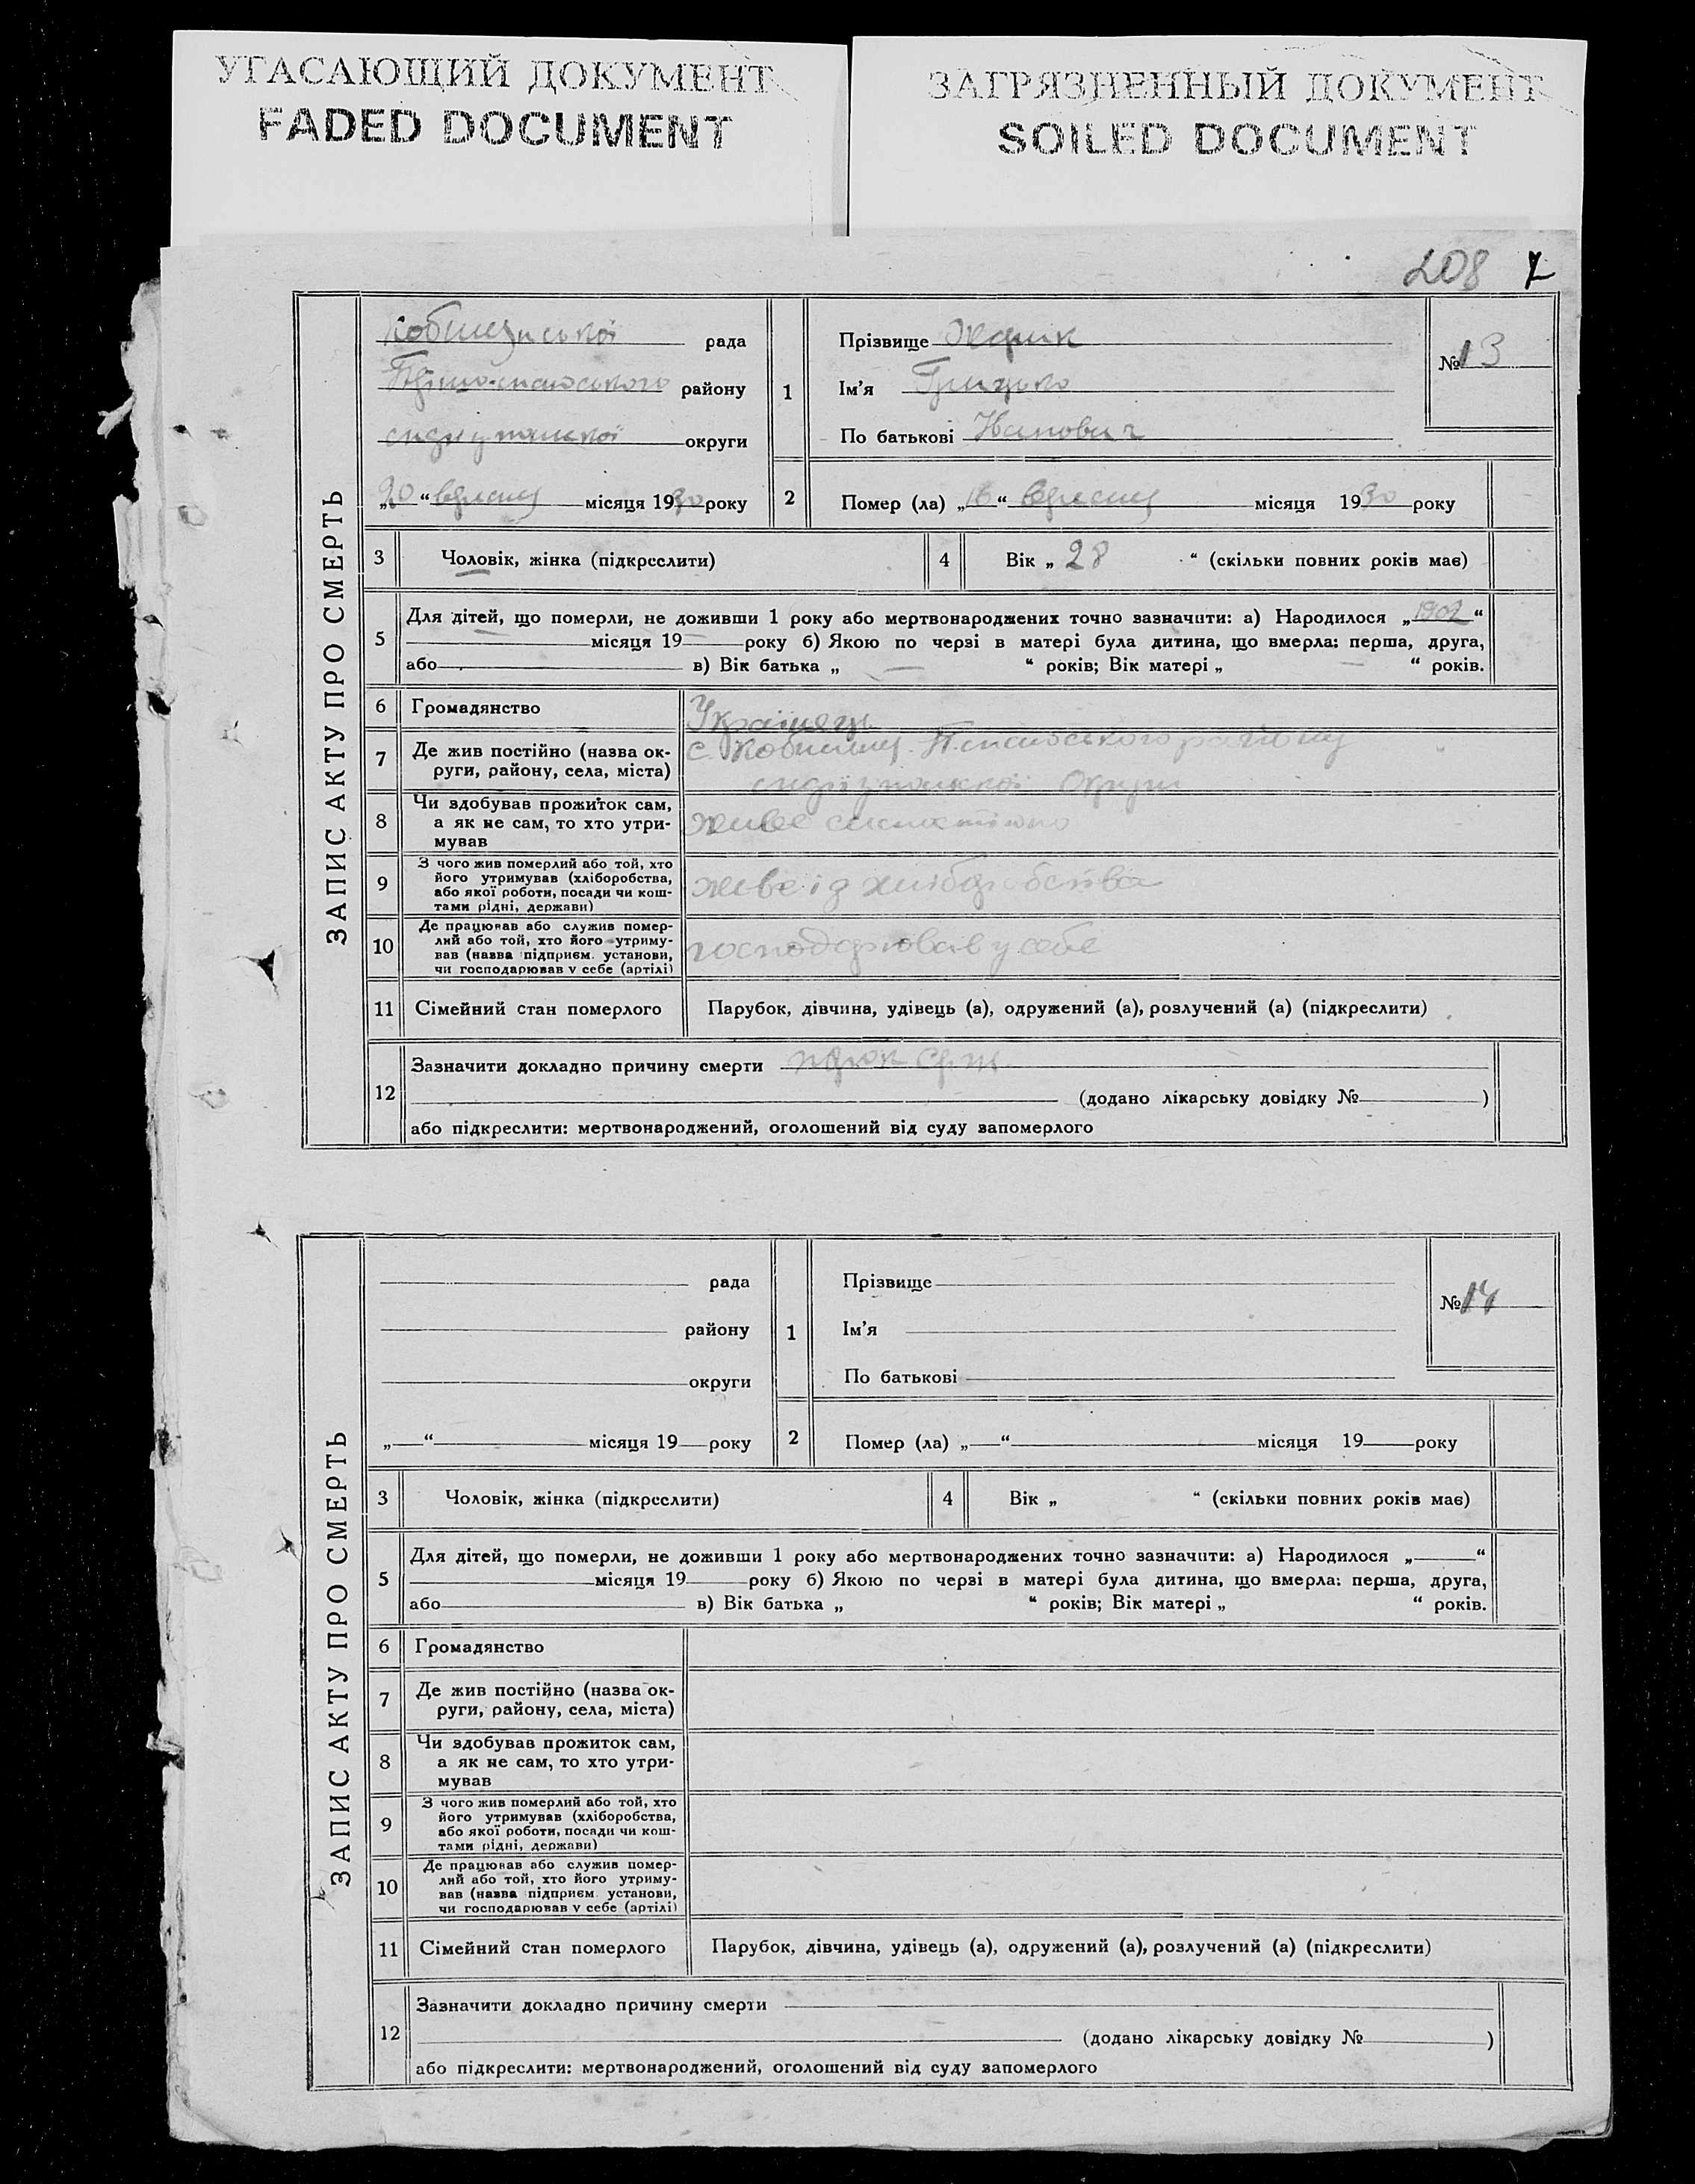 УГАСАЮЩИЙ ДОКУМЕНТ
FADED DOCUMENT
ЗАГРЯЗНЕННЫЙ ДОКУМЕНТ
SOILED DOCUMENT
208
ЗАПИС АКТУ ПРО СМЕРТЬ
рада
району
округи
„20“ місяця 1930 року
1
Прізвище
Ім’я Грицько
По батькові
№ 13
2
Помер (ла) „16“ місяця 1930 року
3
Чоловік, жінка (підкреслити)
4
Вік „ 28 “ (скільки повних років має)
5
Для дітей, що померли, не доживши 1 року або мертвонароджених точно зазначити: а) Народилося „1902“
місяця 19 року б) Якою по черзі в матері була дитина, що вмерла: перша, друга,
або в) Вік батька „ — “ років; Вік матері „ — “ років.
6
Громадянство
Українець
7
Де жив постійно (назва ок-
руги, району, села, міста)
с. району
Округи
8
Чи здобував прожиток сам,
а як не сам, то хто утри-
мував
живе
9
З чого жив померлий або той, хто
його утримував (хліборобства,
або якої роботи, посади чи кош-
тами рідні, держави)
10
Де працював або служив помер-
лий або той, хто його утриму-
вав (назва підприєм. установи,
чи господарював у себе (артілі)
господарював у себе
11
Сімейний стан померлого
Парубок, дівчина, удівець (а), одружений (а), розлучений (а) (підкреслити)
12
Зазначити докладно причину смерти
(додано лікарську довідку № )
або підкреслити: мертвонароджений, оголошений від суду запомерлого
ЗАПИС АКТУ ПРО СМЕРТЬ
рада
району
округи
„ “ місяця 19 року
1
Прізвище
Ім’я
По батькові
№ 14
2
Помер (ла) „ “ місяця 19 року
3
Чоловік, жінка (підкреслити)
4
Вік „ “ (скільки повних років має)
5
Для дітей, що померли, не доживши 1 року або мертвонароджених точно зазначити: а) Народилося „ “
місяця 19 року б) Якою по черзі в матері була дитина, що вмерла: перша, друга,
або в) Вік батька „ “ років; Вік матері „ “ років.
6
Громадянство
7
Де жив постійно (назва ок-
руги, району, села, міста)
8
Чи здобував прожиток сам,
а як не сам, то хто утри-
мував
9
З чого жив померлий або той, хто
його утримував (хліборобства,
або якої роботи, посади чи кош-
тами рідні, держави)
10
Де працював або служив помер-
лий або той, хто його утриму-
вав (назва підприєм. установи,
чи господарював у себе (артілі)
11
Сімейний стан померлого
Парубок, дівчина, удівець (а), одружений (а), розлучений (а) (підкреслити)
12
Зазначити докладно причину смерти
(додано лікарську довідку № )
або підкреслити: мертвонароджений, оголошений від суду запомерлого